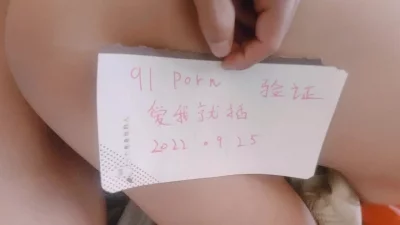 91 porn 验证
爱我就插
2022.09 25